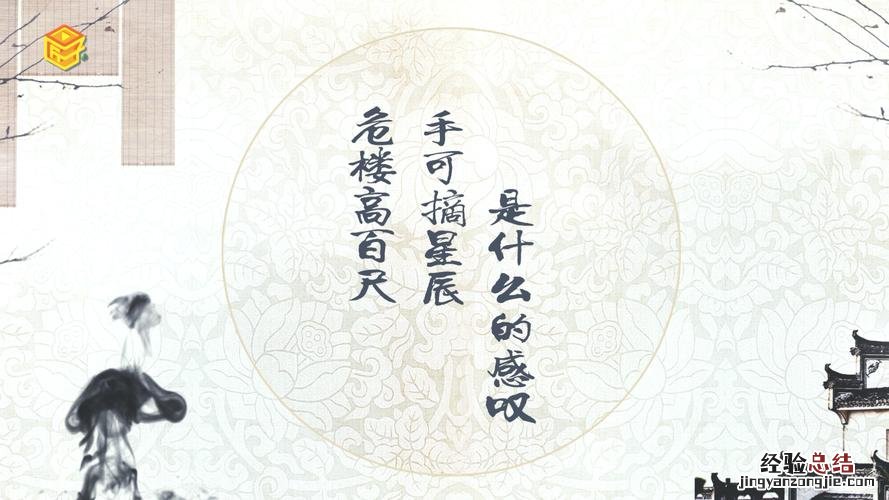 危楼高百尺
手可摘星辰
是什么的感叹
经验总结
jingyanzongjie.com